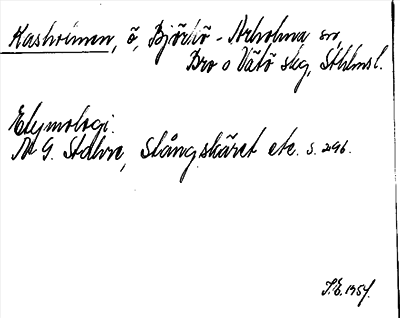 Kasholmen, ö, Björkö - Arholma sn,
Bro o Vätö skg, Sthlmsl.
Etymologi.
N G. Stahre, Stångskäret etc. s. 296.
S.E. 1957.